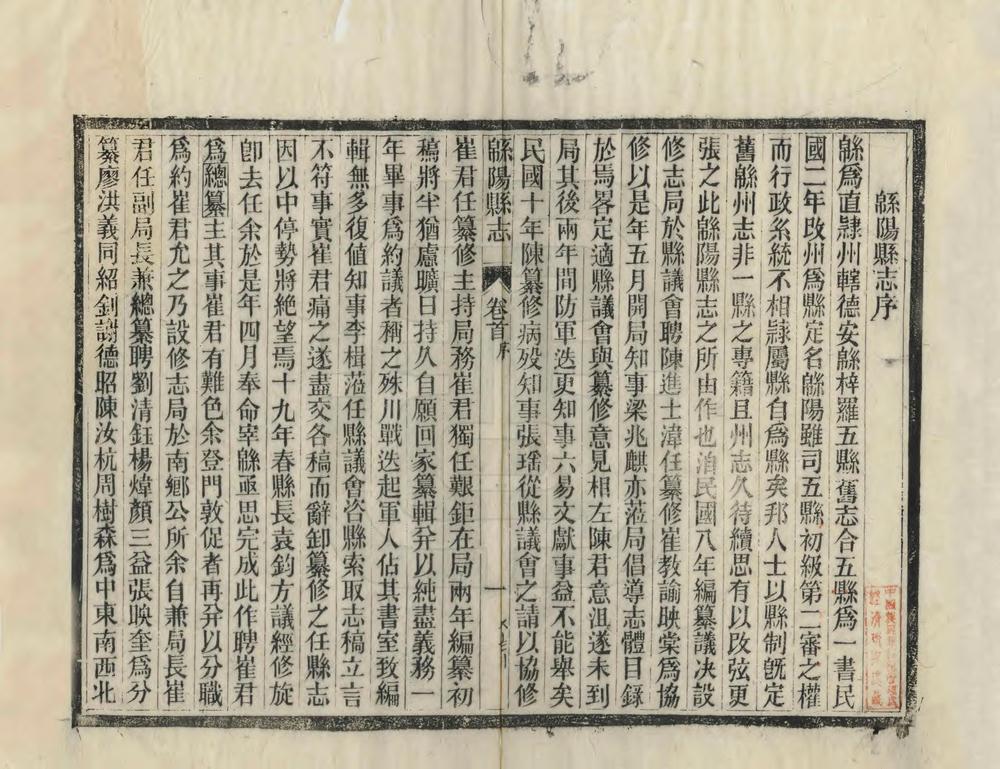 緜陽縣志序
緜爲直隷州轄德安緜梓羅五縣舊志合五縣爲一書民
國二年改州爲縣定名緜陽雖司五縣初級第二審之權
而行政系統不相隷屬縣自爲縣矣邦人士以縣制旣定
舊緜州志非一縣之專籍且州志久待續思有以改弦更
張之此緜陽縣志之所由作也洎民國八年編纂議决設
修志局於縣議會聘陳進士湋任纂修崔敎諭映棠爲協
修以是年五月開局知事梁兆麒亦蒞局倡導志體目錄
於焉畧定適縣議會與纂修意見相左陳君意沮遂未到
局其後兩年間防軍迭更知事六易文獻事益不能舉矣
民國十年陳纂修病殁知事張瑶從縣議會之請以協修
緜陽縣志
卷首
序
一
崔君任纂修主持局務崔君獨任艱鉅在局兩年編纂初
稿將半猶慮曠日持久自願回家纂輯幷以純盡義務一
年畢事爲約議者稱之殊川戰迭起軍人佔其書室致編
輯無多復値知事李楫蒞任縣議會咨縣索取志稿立言
不符事實崔君痛之遂盡交各稿而辭卸纂修之任縣志
因以中停勢將絕望焉十九年春縣長袁鈞方議經修旋
卽去任余於是年四月奉命宰緜亟思完成此作聘崔君
爲總纂主其事崔君有難色余登門敦促者再幷以分職
爲約崔君允之乃設修志局於南鄉公所余自兼局長崔
君任副局長兼總纂聘劉淸鈺楊煒顏三益張映奎爲分
纂廖洪義同紹釗謝德昭陳汝杭周樹森爲中東南西北